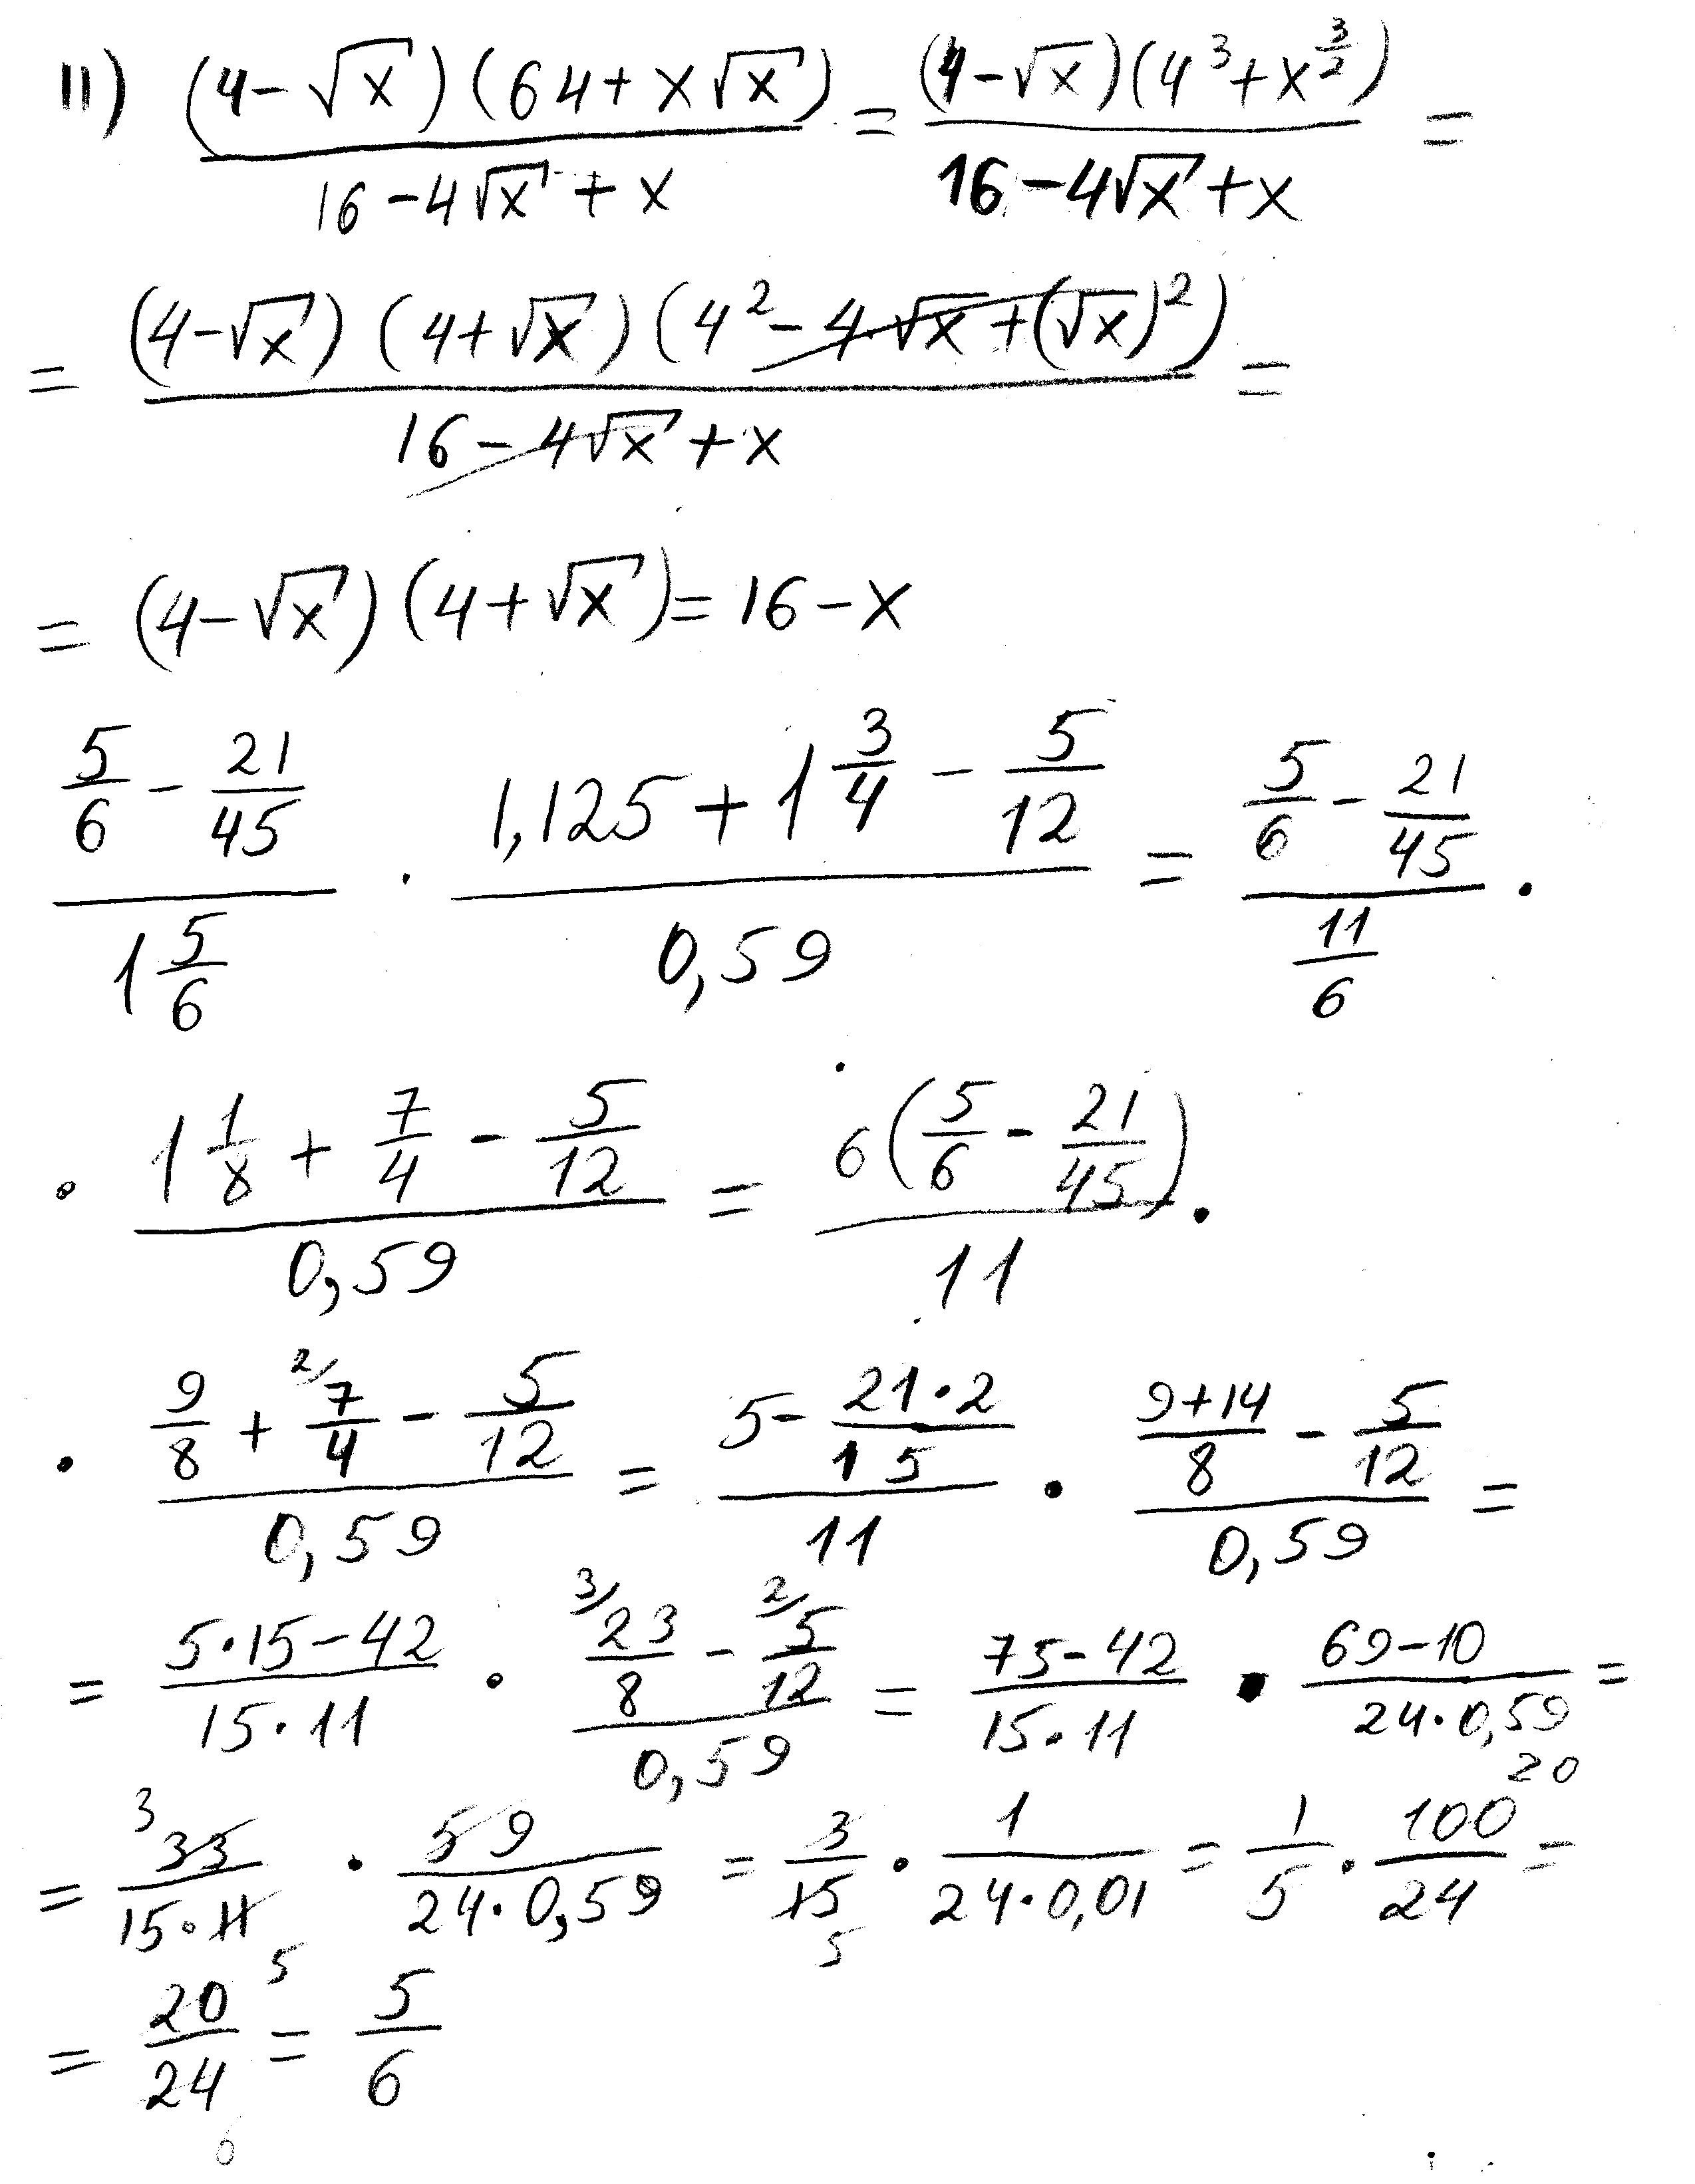 11) ((4-√x)(64+x√x))/(16-4√x+x) = ((4-√x)(4^3+x^(3/2)))/(16-4√x+x) =
= ((4-√x)(4+√x)(4^2-4·√x+(√x)^2))/(16-4√x+x) =
= (4-√x)(4+√x)=16-x
(5/6 - 21/45)/(1 5/6) · (1,125+1 3/4 - 5/12)/(0,59) = (5/6 - 21/45)/(11/6) ·
· (1 1/8 + 7/4 - 5/12)/(0,59) = (6(5/6 - 21/45))/11 ·
· (9/8 + 2/ 7/4 - 5/12)/(0,59) = (5 - (21·2)/15)/11 · ((9+14)/8 - 5/12)/(0,59) =
= (5·15-42)/(15·11) · (3/ 23/8 - 2/ 5/12)/(0,59) = (75-42)/(15·11) · (69-10)/(24·0,59) =
= 3 33/(15·11) · 59/(24·0,59) = 3/15 5 · 1/(24·0,01) = 1/5 · 100 20/24 =
= 20 5/24 6 = 5/6